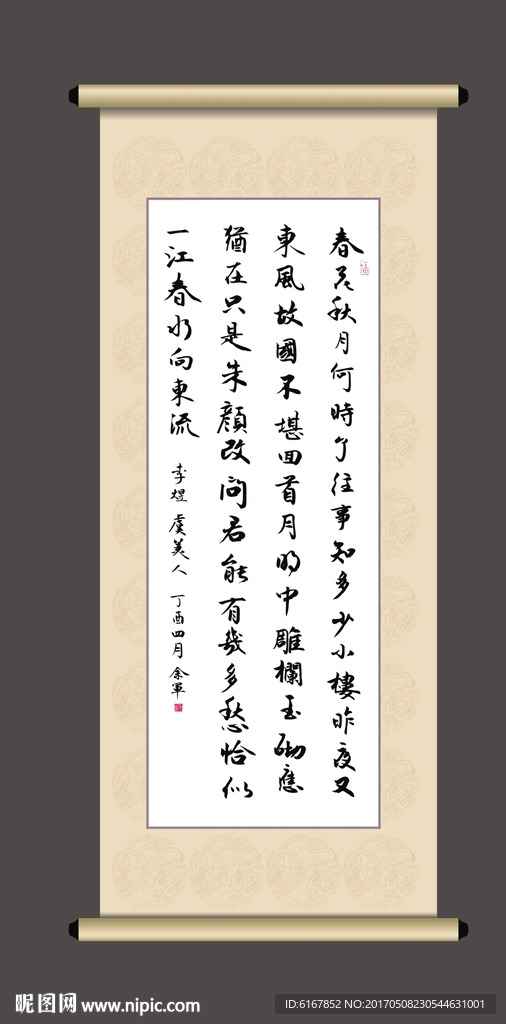 春花秋月何時了往事知多少小樓昨夜又
東風故國不堪回首月明中雕欄玉砌應
猶在只是朱顏改問君能有幾多愁恰似
一江春水向東流
李煜 虞美人 丁酉四月 余軍
昵图网 www.nipic.com
ID:6167852 NO:20170508230544631001